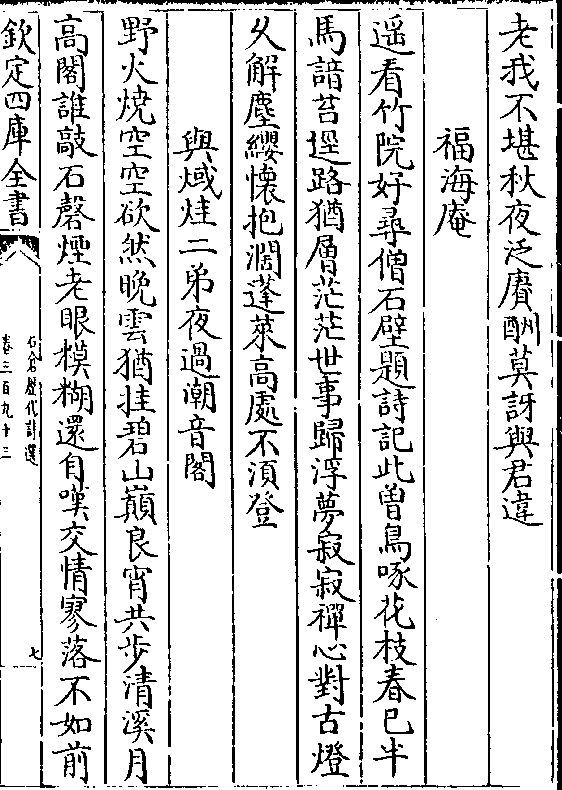 老我不堪秋夜泛賡酬莫訝與君違
福海庵
遥看竹院好尋僧石壁題詩記此曽鳥啄花枝春已半
馬諳苔逕路猶層茫茫世事歸浮夢寂寂禪心對古燈
乆解塵纓懐抱濶蓬萊高處不湏登
與㷇烓二弟夜過潮音閣
野火燒空空欲然晩雲猶挂碧山巔良宵共步清溪月
高閣誰敲石磬煙老眼模糊還自嘆交情寥落不如前
欽定四庫全書
石倉歴代詩選
卷三百九十三
七